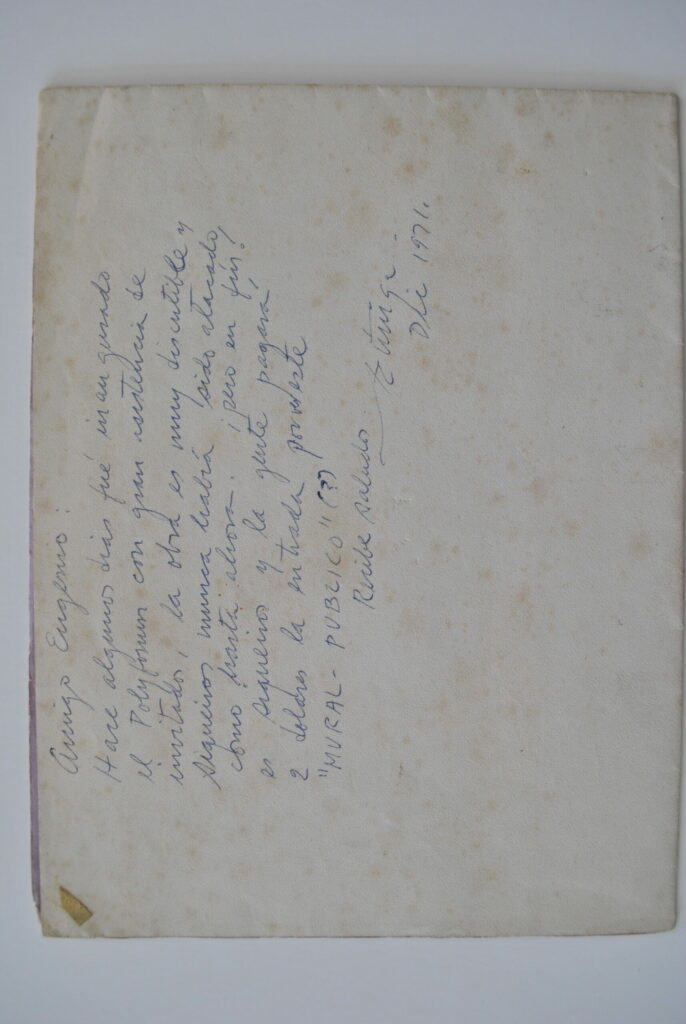 Amigo Eugenio:
Hace algunos dias fué inaugurado
el Polyforum con gran asistencia de
invitados, la obra es muy discutible y
Siqueiros nunca habrá sido atacado
como hasta ahora. ¡pero en fin!
es siqueiros y la gente pagará
2 dolares la entrada por este
"MURAL-PUBLICO" (??)
Recibe saludos
Zúñiga
Dic 1971.